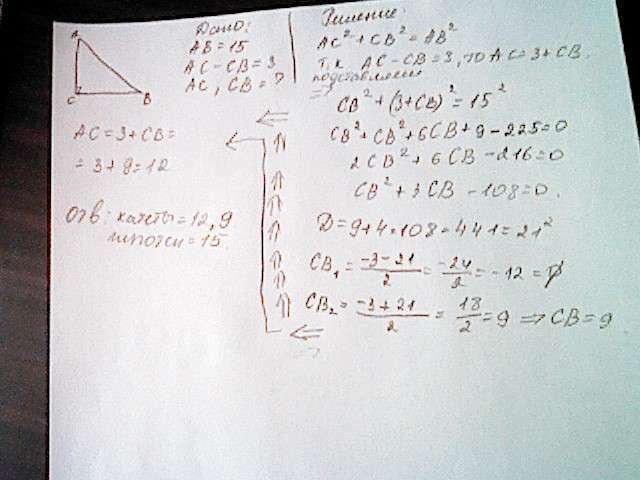 A
C
B
Дано:
AB = 15
AC - CB = 3
AC, CB = ?
Решение:
AC² + CB² = AB²
Т.к. AC - CB = 3, то AC = 3 + CB.
подставляем
=>
CB² + (3+CB)² = 15²
CB² + CB² + 6CB + 9 - 225 = 0
2CB² + 6CB - 216 = 0
CB² + 3CB - 108 = 0.
D = 9 + 4·108 = 441 = 21²
CB₁ = (-3-21)/2 = -24/2 = -12 = ∅
CB₂ = (-3+21)/2 = 18/2 = 9 => CB = 9
AC = 3 + CB =
= 3 + 9 = 12
Отв: катеты = 12, 9
гипотен = 15.